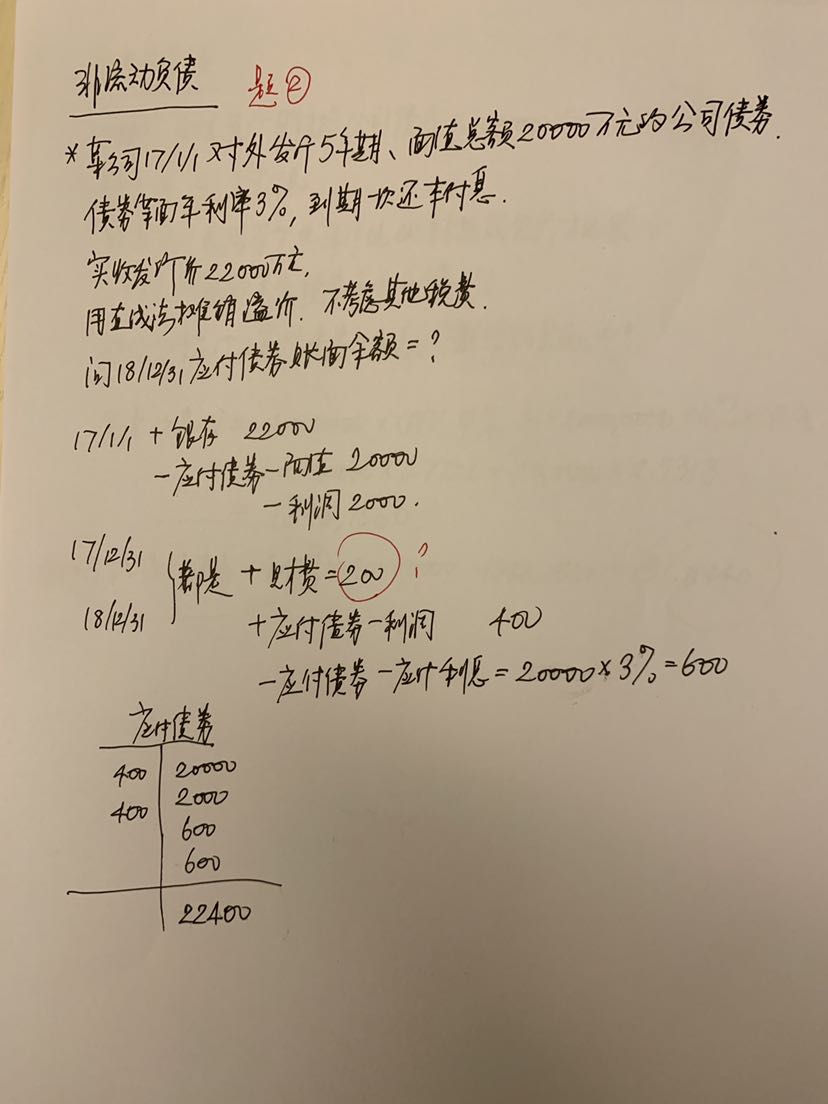 非流动负债 题②
*某公司17/1/1对外发行5年期、面值总额20000万元的公司债券.
债券票面年利率3%,到期一次还本付息.
实收发行价22000万元,
用直线法摊销溢价.不考虑其他税费.
问18/12/31应付债券账面余额=?
17/1/1 +银存 22000
-应付债券-面值 20000
-利润 2000.
17/12/31
18/12/31
都是 +财费=200 ?
+应付债券-利润 400
-应付债券-应计利息=20000×3%=600
应付债券
400 20000
400 2000
600
600
22400